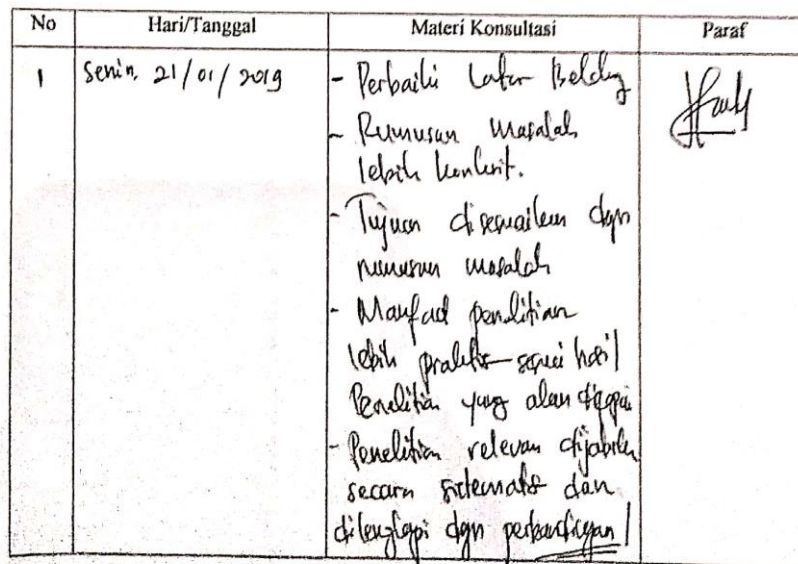 No Hari/Tanggal Materi Konsultasi Paraf
1 Senin, 21/01/2019 - Perbaiki Latar Belakg
- Rumusan masalah
lebih konkrit.
- Tujuan disesuaikan dgn
rumusan masalah
- Manfaat penelitian
lebih praktis sesuai hasil
Penelitian yang akan dicapai
- Penelitian relevan dijabarkan
secara sistematis dan
dilengkapi dgn perbandingan